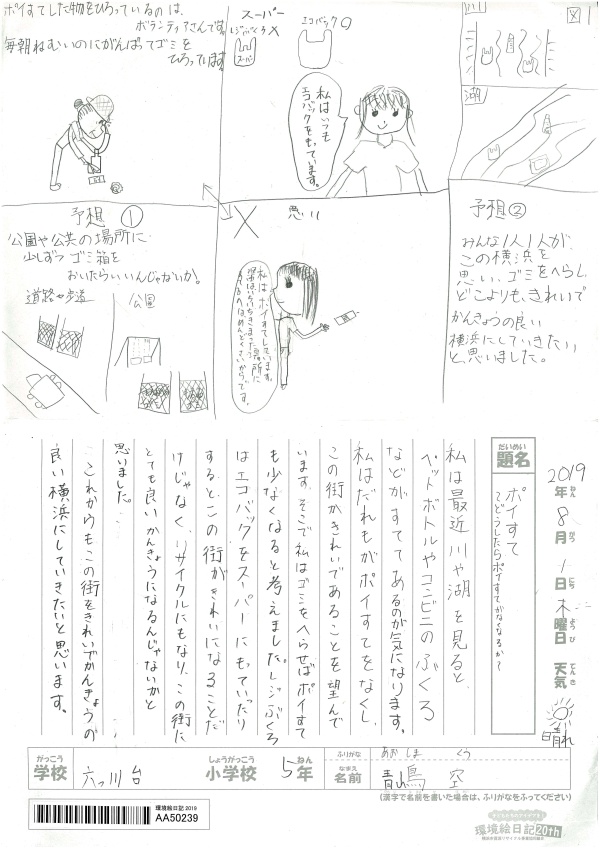 ポイすてした物をひろっているのは、
ボランティアさんです。
毎朝ねむいのにがんばってゴミを
ひろっています。
スーパー
レジぶくろ×
スーパー
エコバック○
私はいつも
エコバックをもっています。
図1
湖
予想①
公園や公共の場所に
少しずつゴミ箱を
おいたらいいんじゃないか!
道路や歩道
公園
×
思い
私はポイすてしています。
予想②
みんな1人1人が、
この横浜を
思い、ゴミをへらし、
どこよりも、きれいで
かんきょうの良い
横浜にしていきたい
と、思いました。
2019年8月1日木曜日 天気 晴れ
ねん がつ にち ようび てんき
だいめい
題名
ポイすて
てどうしたらポイすてがなくなるか?
私は最近川や湖を見ると、
ペットボトルやコンビニのぶくろ
などがすててあるのが気になります。
私はだれもがポイすてをなくし、
この街がきれいであることを望んで
います。そこで私はゴミをへらせばポイすて
も少なくなると考えました。レジぶくろ
はエコバックをスーパーにもっていったり
すると、この街がきれいになることだ
けじゃなく、リサイクルにもなり、この街に
とても良いかんきょうになるんじゃないかと
思いました。
これからもこの街をきれいでかんきょうの
良い横浜にしていきたいと思います。
がっこう
学校
六つ川台
しょうがっこう
小学校
5年
ねん
ふりがな
あおしま くう
なまえ
名前
青嶋 空
(漢字で名前を書いた場合は、ふりがなをふってください)
環境絵日記2019
AA50239
環境絵日記20th